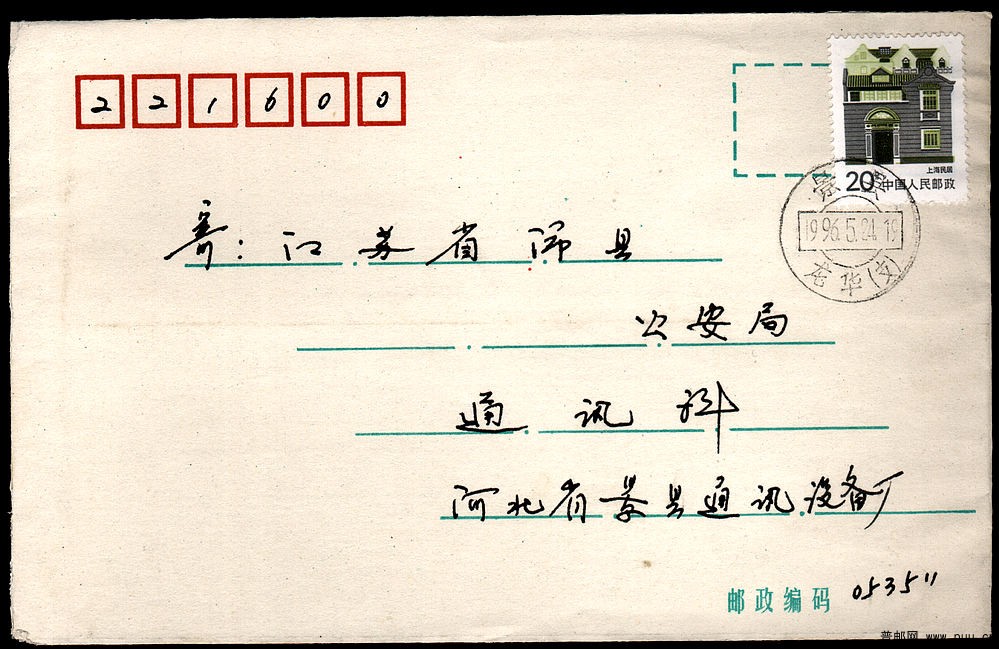 221600
上海民居
20 中国人民邮政
景县
1996.5.24.19
龙华(支)
寄:江苏省沛县
公安局
通讯科
河北省景县通讯设备厂
邮政编码 053511
普邮网 www.puu.c